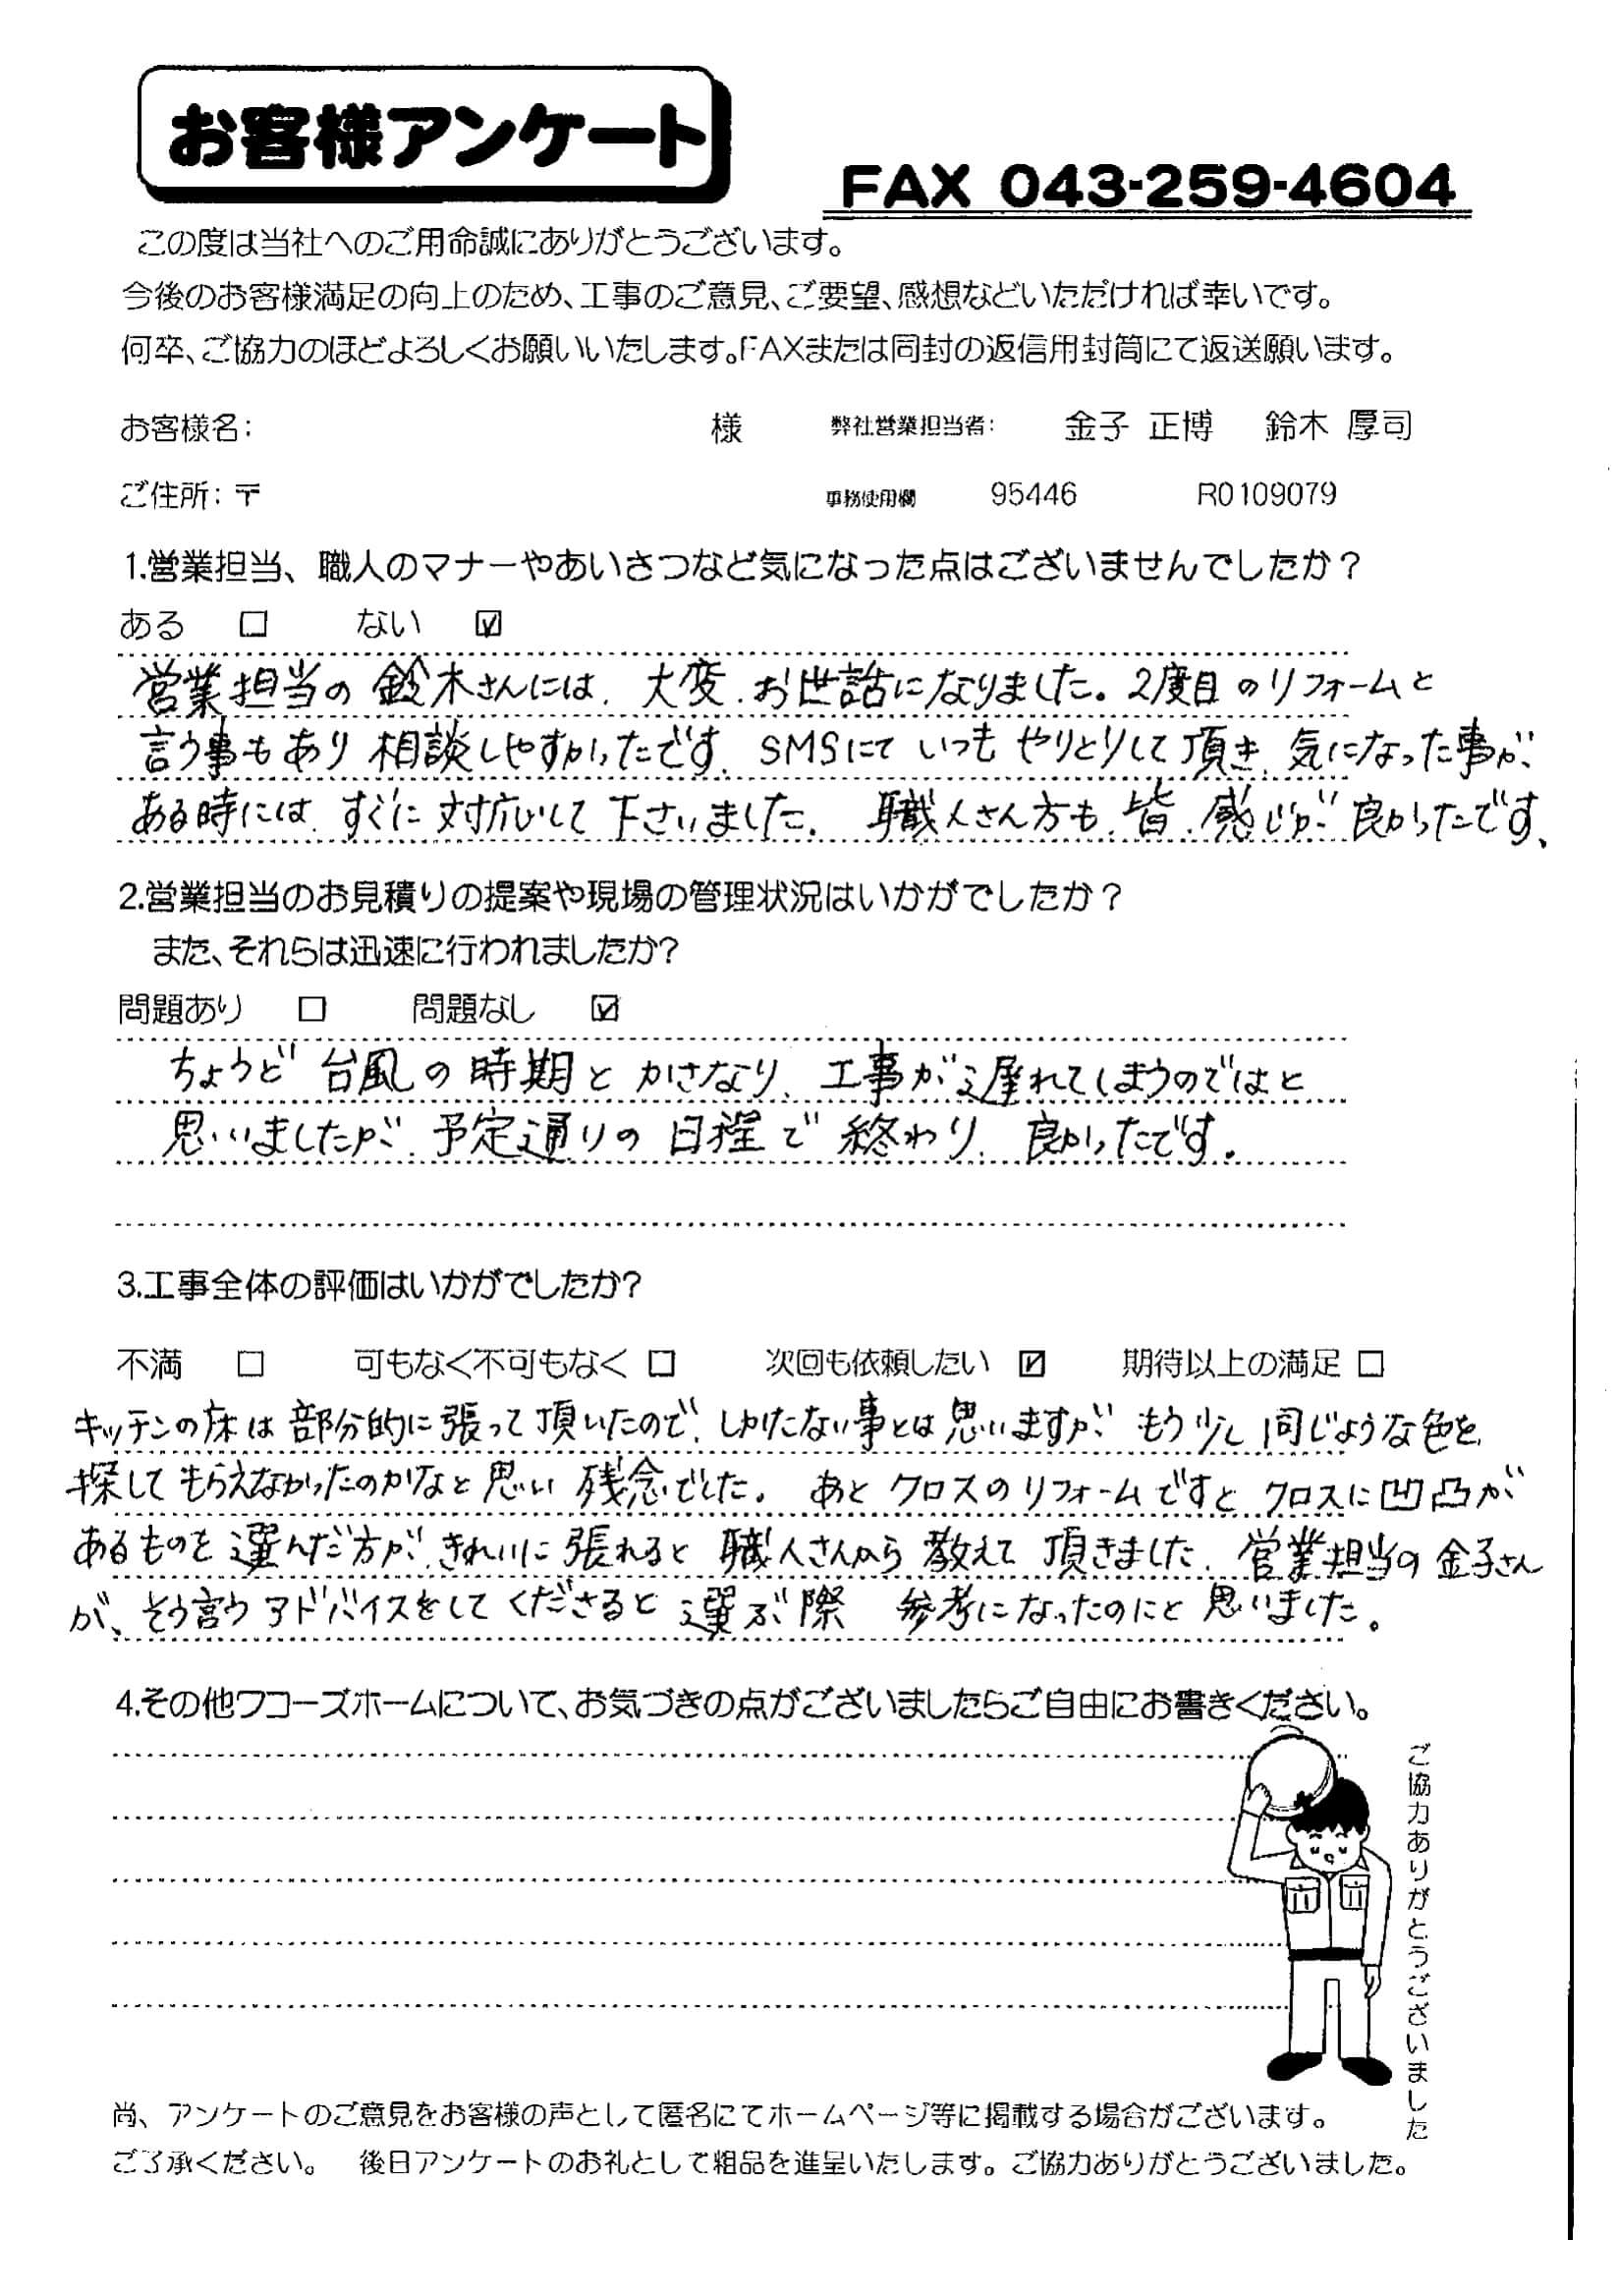 お客様アンケート
FAX 043-259-4604
この度は当社へのご用命誠にありがとうございます。
今後のお客様満足の向上のため、工事のご意見、ご要望、感想などいただければ幸いです。
何卒、ご協力のほどよろしくお願いいたします。FAXまたは同封の返信用封筒にて返送願います。
お客様名： 様 弊社営業担当者： 金子 正博 鈴木 厚司
ご住所：〒 事務使用欄 95446 R0109079
1.営業担当、職人のマナーやあいさつなど気になった点はございませんでしたか？
ある □ ない ☑
営業担当の鈴木さんには、大変、お世話になりました。2度目のリフォームと
言う事もあり相談しやすかったです。SMSにていつもやりとりして頂き、気になった事が
ある時には、すぐに対応して下さいました。職人さん方も、皆、感じが良かったです、
2.営業担当のお見積りの提案や現場の管理状況はいかがでしたか？
また、それらは迅速に行われましたか？
問題あり □ 問題なし ☑
ちょうど台風の時期とかさなり、工事が遅れてしまうのではと
思いましたが、予定通りの日程で終わり、良かったです。
3.工事全体の評価はいかがでしたか？
不満 □ 可もなく不可もなく □ 次回も依頼したい ☑ 期待以上の満足 □
キッチンの床は部分的に張って頂いたので、しかたない事とは思いますが、もう少し同じような色を
探してもらえなかったのかなと思い残念でした。あとクロスのリフォームですと、クロスに凹凸が
あるものを選んだ方が、きれいに張れると職人さんから教えて頂きました。営業担当の金子さん
が、そう言うアドバイスをしてくださると選ぶ際 参考になったのにと思いました。
4.その他ワコーズホームについて、お気づきの点がございましたらご自由にお書きください。
ご協力ありがとうございました
尚、アンケートのご意見をお客様の声として匿名にてホームページ等に掲載する場合がございます。
ご了承ください。 後日アンケートのお礼として粗品を進呈いたします。ご協力ありがとうございました。